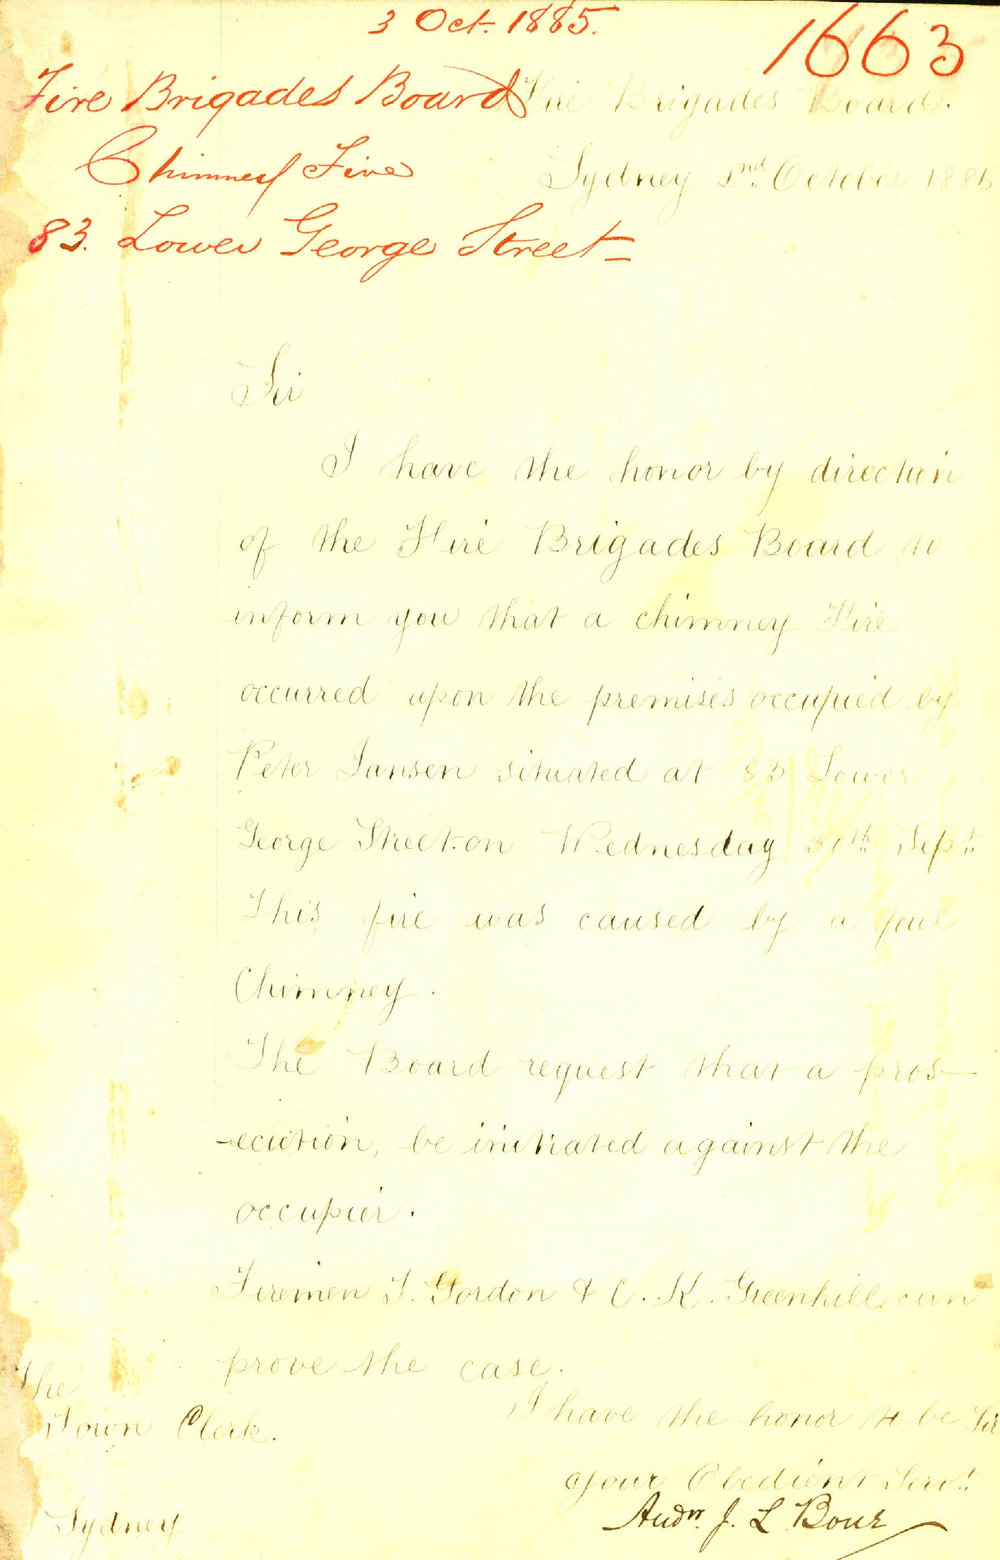 3 Oct. 1885.
1663
Fire Brigades Board
Chimney Fire
83. Lower George Street
Fire Brigades Board.
Sydney 2nd October 188
Sir
I have the honor by direction
of the Fire Brigades Board to
inform you that a chimney Fire
occurred upon the premises occupied by
Peter Jansen situated at 83 Lower
George Street on Wednesday 30th Sept.
This fire was caused by a foul
Chimney.
The Board request that a pros-
-ecution, be initiated against the
occupier.
Firemen T. Gordon & C. K. Greenhill can
prove the case.
I have the honor to be Sir
your Obedient Servt.
Andw. J. L.
The
Town Clerk.
Sydney